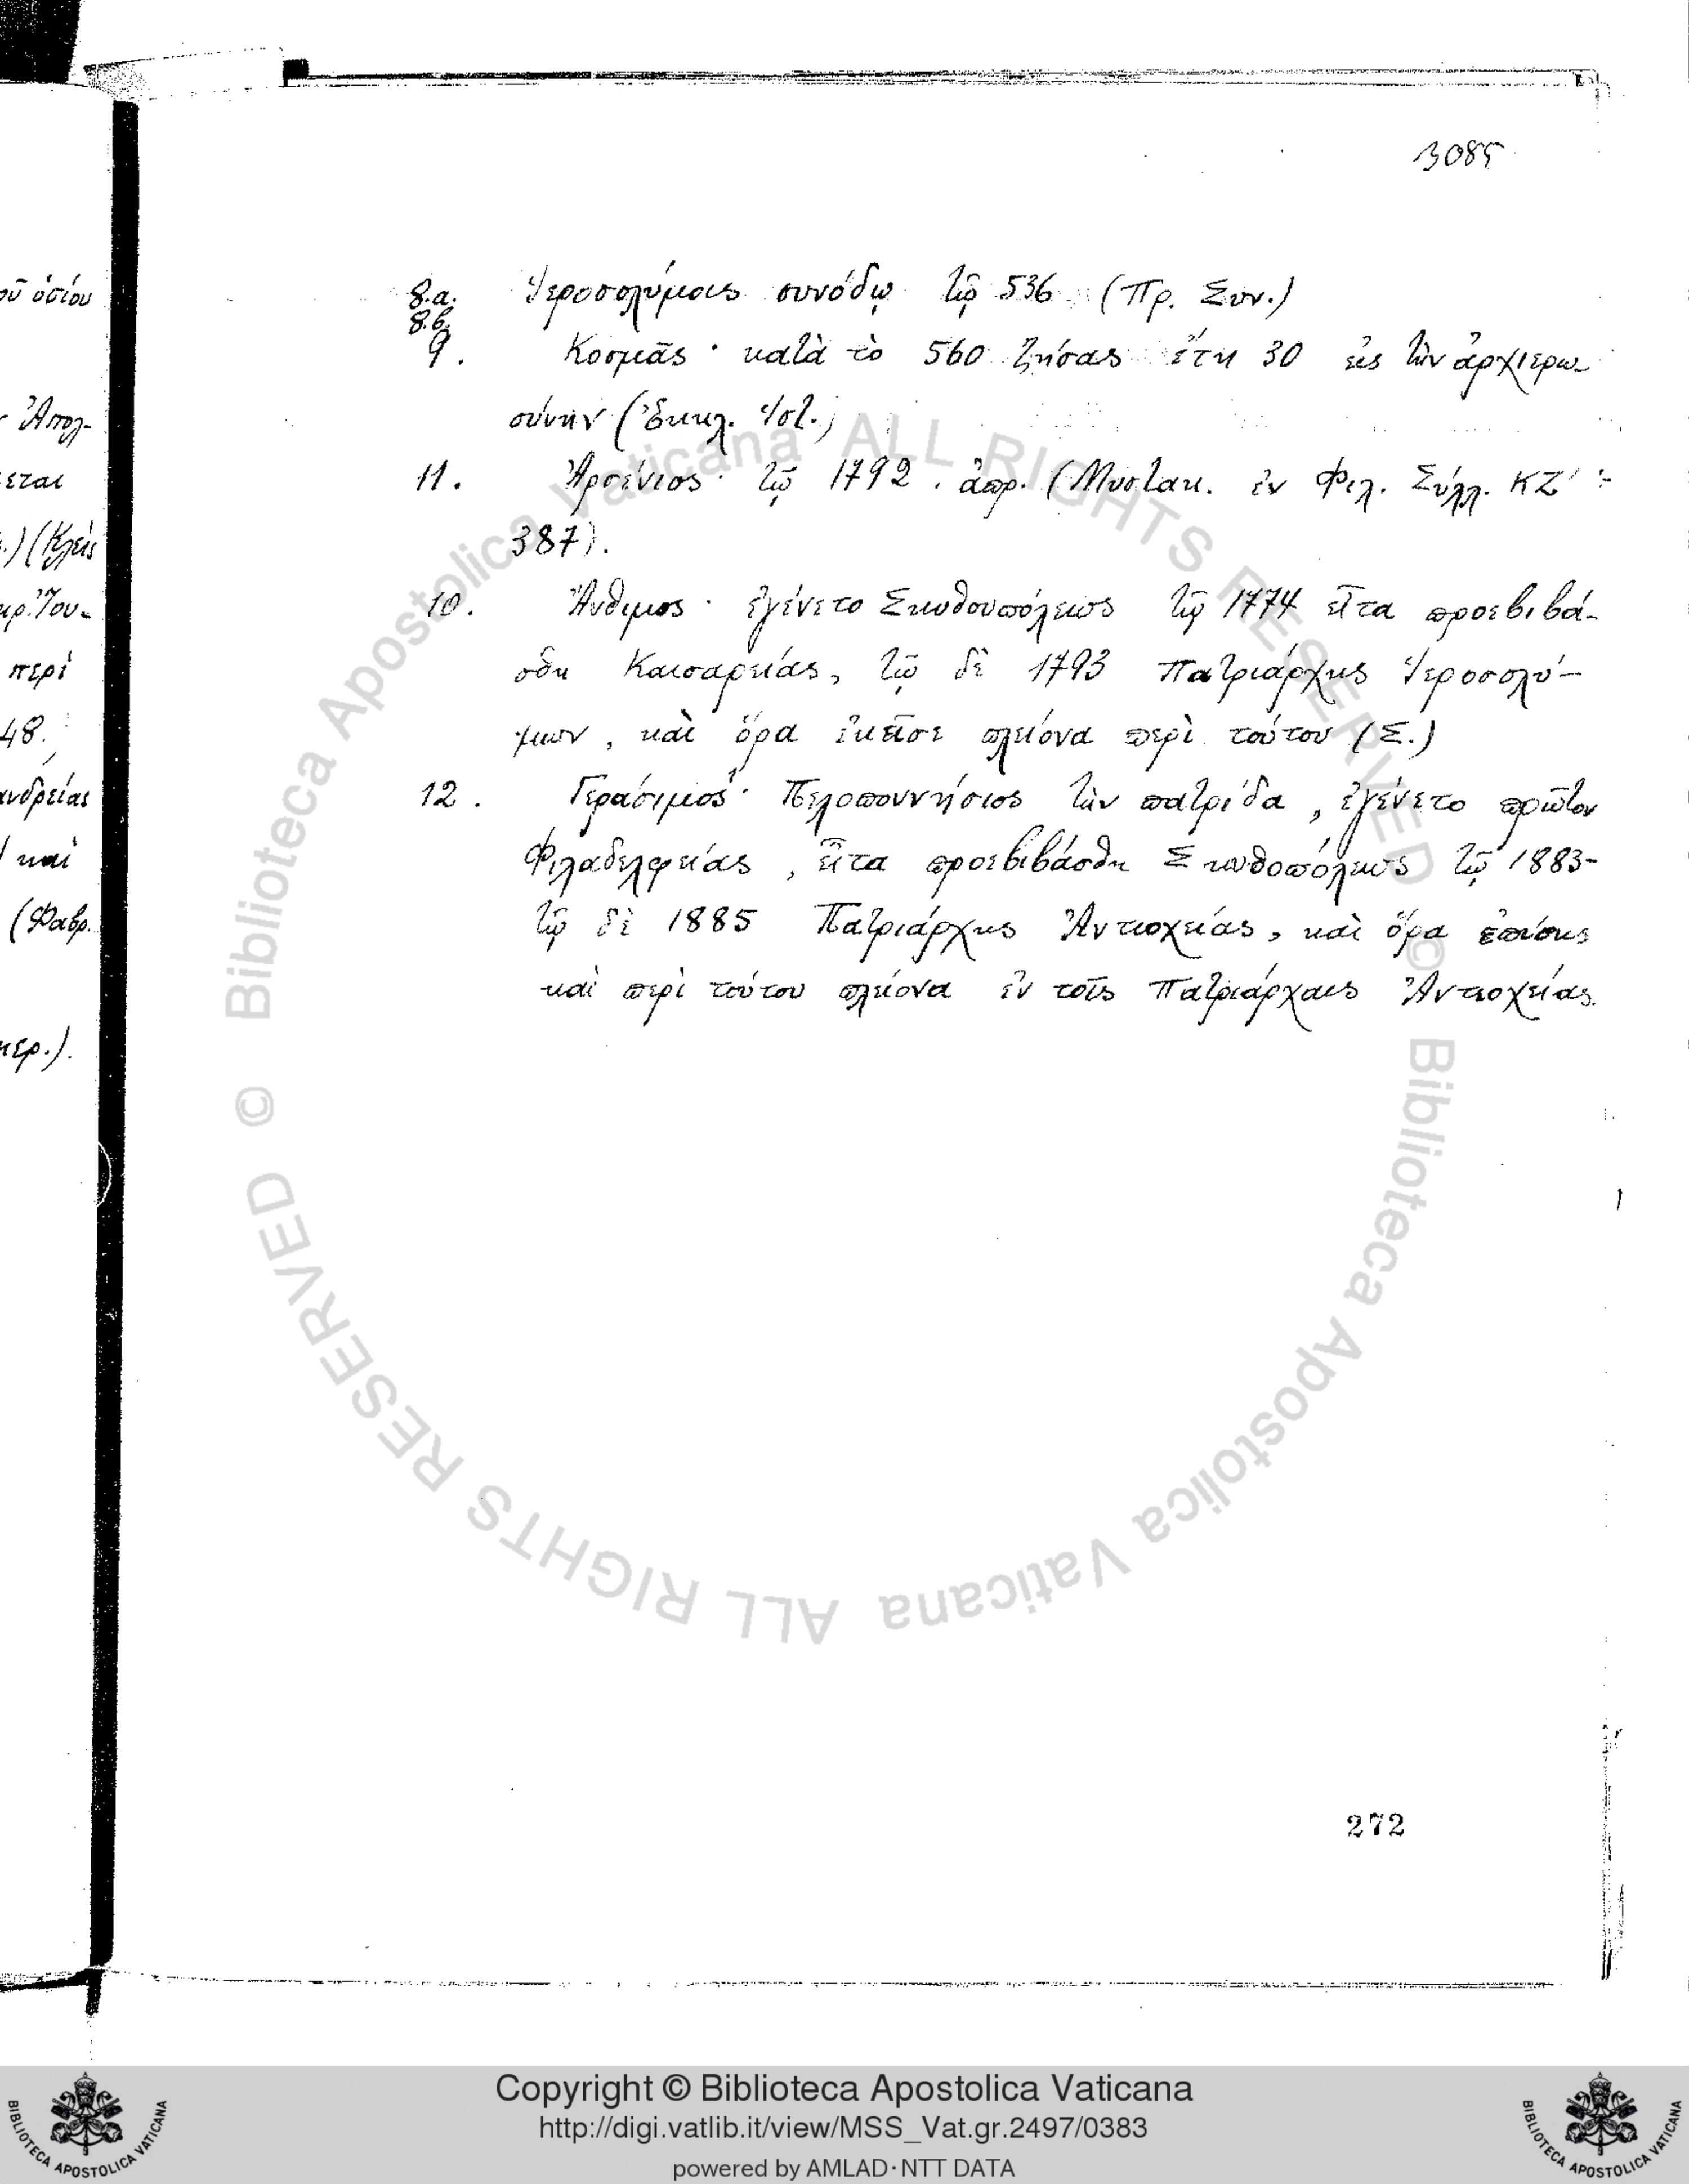 3085
οῦ ὁσίου
Ἀπολ-
εται
.) (Κλεὶς
κρ. Ἰου-
περὶ
48.
ανδρείας
καὶ
(Φαβρ.
κερ.).
8.α. Ἱεροσολύμοις συνόδῳ τῷ 536 (Πρ. Συν.)
8.β.
9. Κοσμᾶς · κατὰ τὸ 560 ζήσας ἔτη 30 εἰς τὴν ἀρχιερω-
σύνην (Ἐκκλ. Ἱστ.)
11. Ἀρσένιος · τῷ 1792 . ἀπρ. (Μυστακ. ἐν Φιλ. Σύλλ. ΚΖ΄ :
387).
10. Ἄνθιμος · ἐγένετο Σκυθουπόλεως τῷ 1774 εἶτα προεβιβά-
σθη Καισαρείας, τῷ δὲ 1793 Πατριάρχης Ἱεροσολύ-
μων, καὶ ὅρα ἐκεῖσε πλείονα περὶ τούτου (Σ.)
12. Γεράσιμος · Πελοποννήσιος τὴν πατρίδα, ἐγένετο πρῶτον
Φιλαδελφείας, εἶτα προεβιβάσθη Σκυθοπόλεως τῷ 1883-
τῷ δὲ 1885 Πατριάρχης Ἀντιοχείας, καὶ ὅρα ἐπίσης
καὶ περὶ τούτου πλείονα ἐν τοῖς Πατριάρχαις Ἀντιοχείας.
272
© Biblioteca Apostolica Vaticana ALL RIGHTS RESERVED
© Biblioteca Apostolica Vaticana ALL RIGHTS RESERVED
Copyright © Biblioteca Apostolica Vaticana
http://digi.vatlib.it/view/MSS_Vat.gr.2497/0383
powered by AMLAD·NTT DATA
BIBLIOTECA APOSTOLICA VATICANA
BIBLIOTECA APOSTOLICA VATICANA